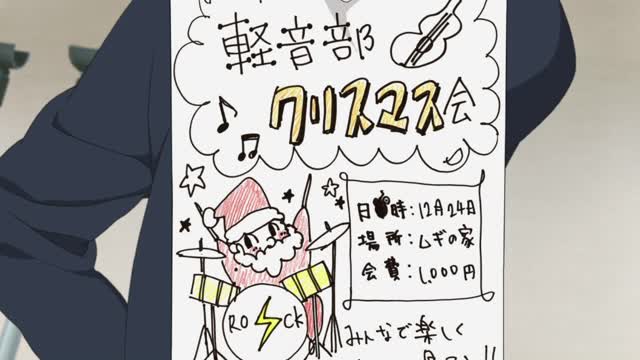 軽音部
クリスマス会
日時：12月24日
場所：ムギの家
会費：1,000円
RO CK
みんなで楽しく